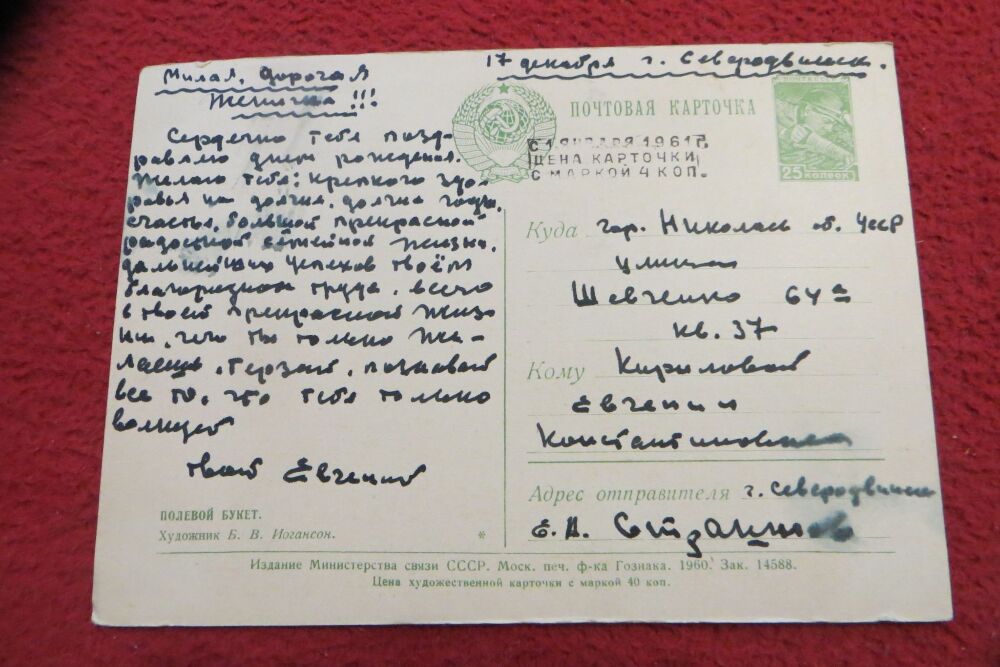 17 декабря г. Северодвинск.
Милая, дорогая
Женичка!!!
Сердечно тебя позд-
равляю днём рождения.
Желаю тебе: крепкого здо-
ровья на долгие, долгие годы,
счастья, большой прекрасной
радостной семейной жизни,
дальнейших успехов твоём
благородном труде, всего
в твоей прекрасной жизн
ни, чего ты только же-
лаешь. Герзай, познавай
все то, что тебя только
волнует
Твой Евгений
ПОЛЕВОЙ БУКЕТ.
Художник Б. В. Иогансон.
*
ПОЧТОВАЯ КАРТОЧКА
ПОЧТА СССР
25 КОПЕЕК
С 1 ЯНВАРЯ 1961 Г.
ЦЕНА КАРТОЧКИ
С МАРКОЙ 4 КОП.
Куда гор. Николаев об. УССР
улица
Шевченко 64а
кв. 37
Кому Кириловой
Евгении
Константиновне
Адрес отправителя г. Северодвинск
Е. А.
Издание Министерства связи СССР. Моск. печ. ф-ка Гознака. 1960. Зак. 14588.
Цена художественной карточки с маркой 40 коп.